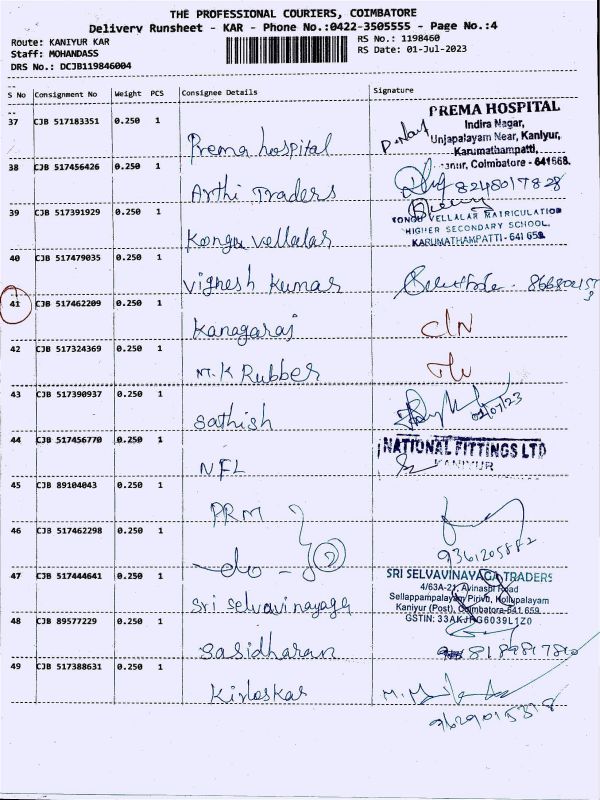 THE PROFESSIONAL COURIERS, COIMBATORE
Delivery Runsheet - KAR - Phone No.:0422-3505555 - Page No.:4
Route: KANIYUR KAR
RS No.: 1198460
Staff: MOHANDASS
RS Date: 01-Jul-2023
DRS No.: DCJB119846004
S No Consignment No Weight PCS Consignee Details Signature
37 CJB 517183351 0.250 1
PREMA HOSPITAL
Indira Nagar,
Unjapalayam Near, Kaniyur,
Karumathampatti,
Coimbatore - 641668.
Prema hospital
38 CJB 517456426 0.250 1
Arthi Traders 8248017828
39 CJB 517391929 0.250 1
KONGU VELLALAR MATRICULATION
HIGHER SECONDARY SCHOOL,
KARUMATHAMPATTI - 641 659.
Kongu vellalar
40 CJB 517479035 0.250 1
Vighesh Kumar
41 CJB 517462209 0.250 1
Kanagaraj
42 CJB 517324369 0.250 1
M.K Rubber
43 CJB 517390937 0.250 1
Sathish
44 CJB 517456770 0.250 1
NATIONAL FITTINGS LTD
KANIYUR
NFL
45 CJB 89104043 0.250 1
PRM
46 CJB 517462298 0.250 1
9361205882
-do- 2
47 CJB 517444641 0.250 1
SRI SELVAVINAYAGA TRADERS
4/63A-21, Avinashi Road
Sellappampalayam Pirivu, Kollupalayam
Kaniyur (Post), Coimbatore-641 659
GSTIN: 33AKJPG6039L1Z0
Sri selvavinayaga
48 CJB 89577229 0.250 1
Sasidharan
49 CJB 517388631 0.250 1
Kirloskar
9629015318